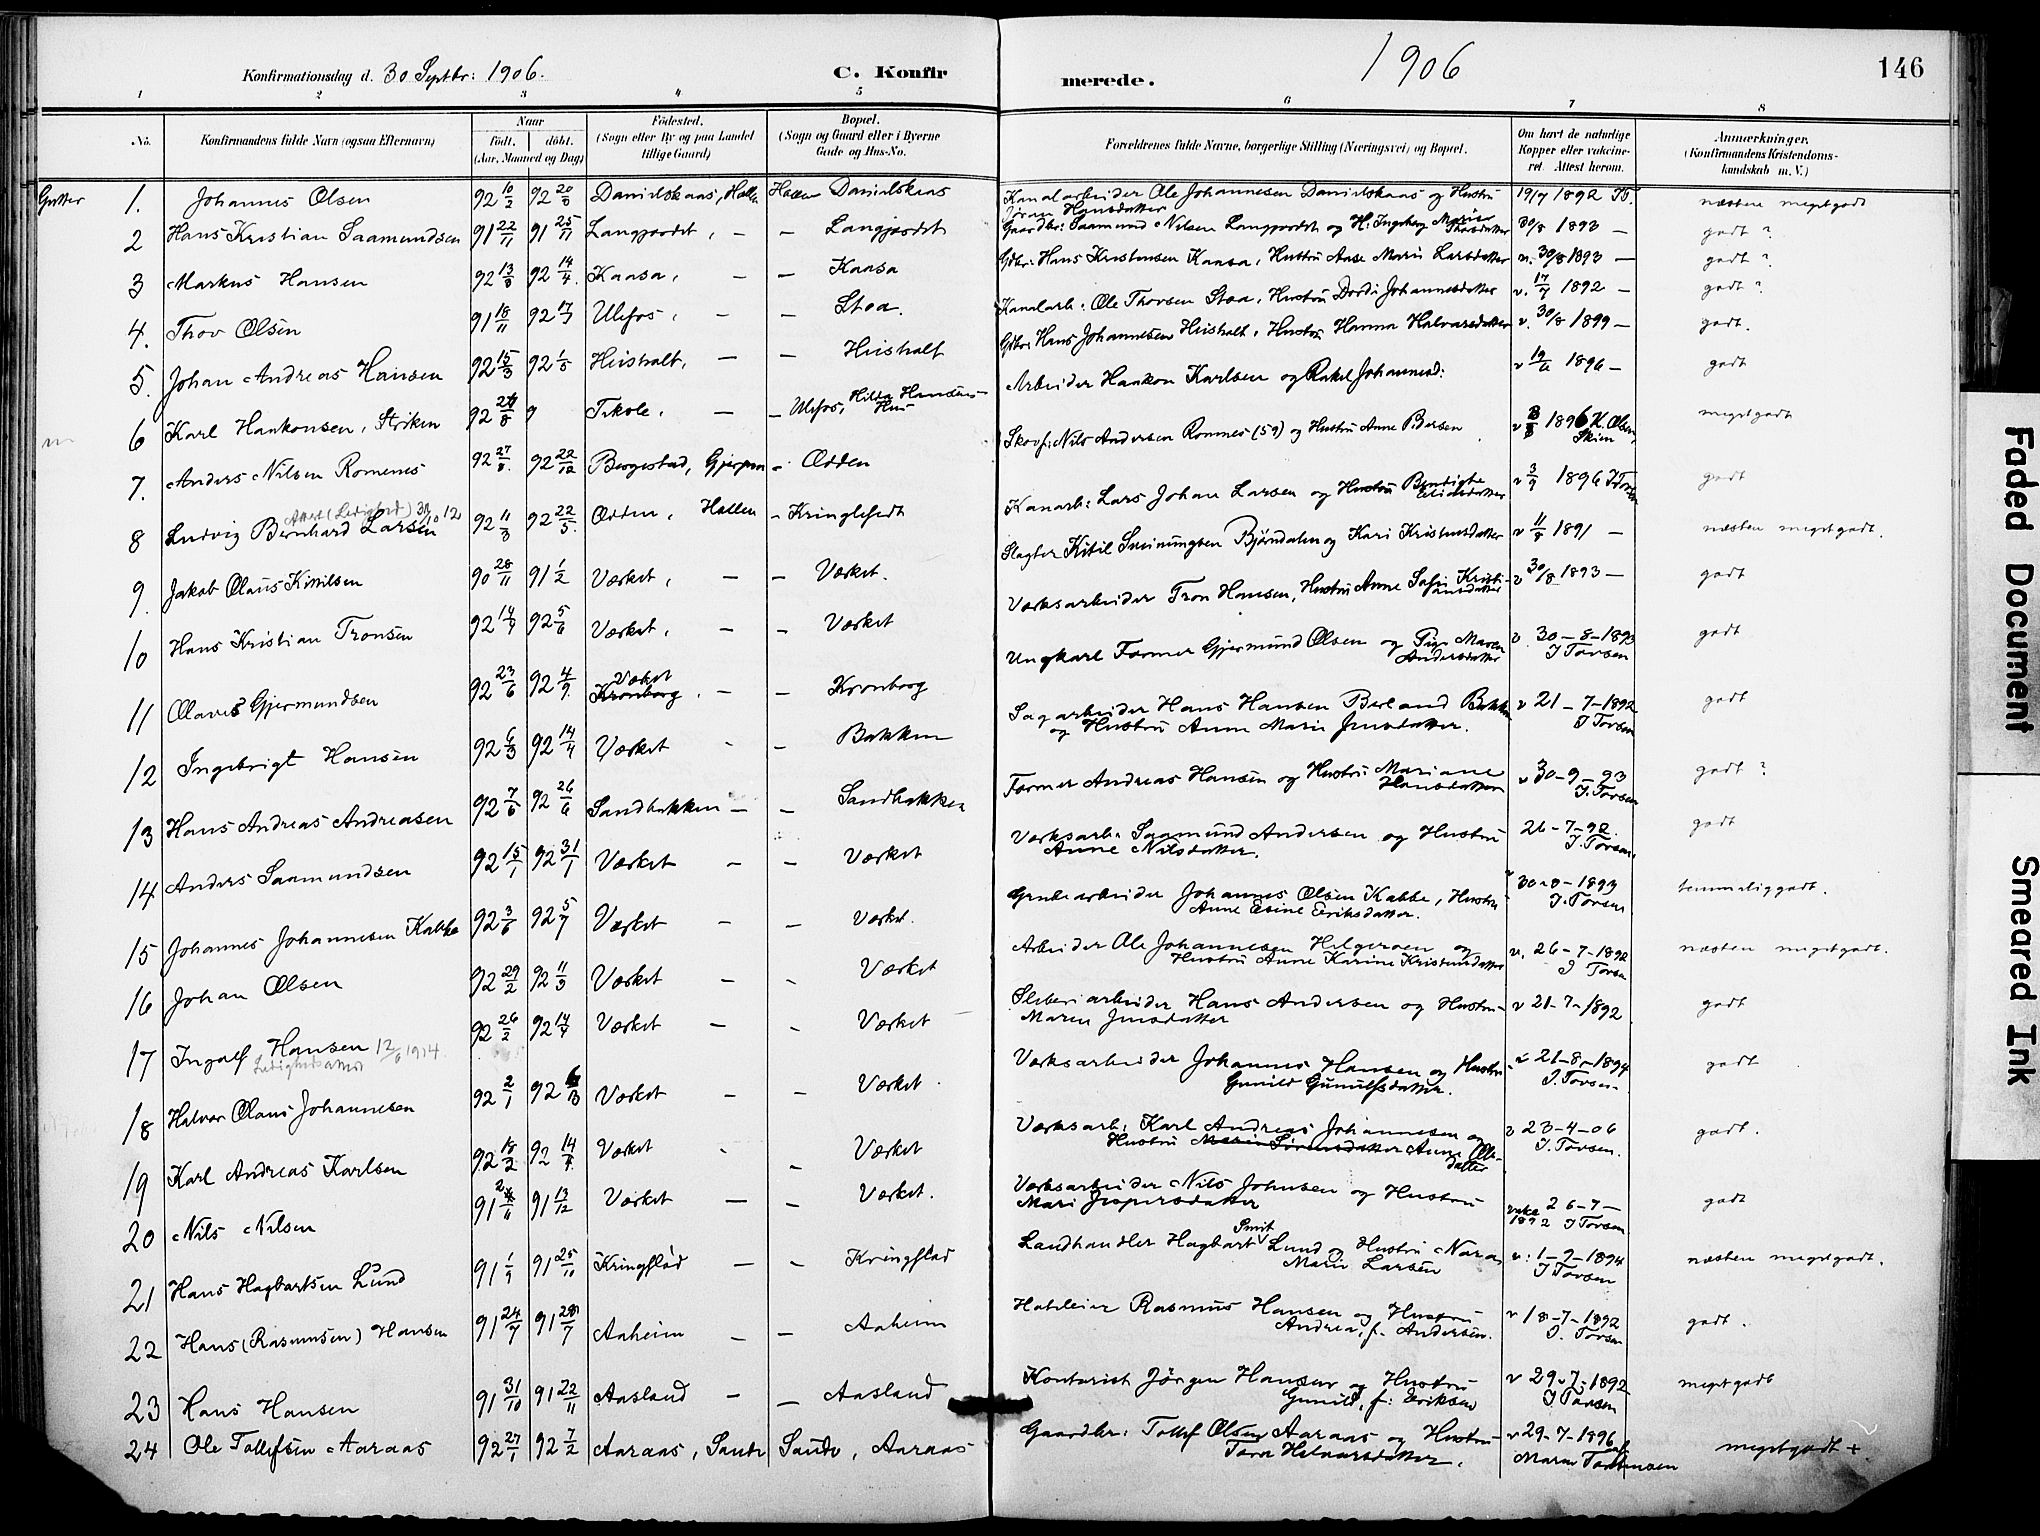 Konfirmationsdag d. 30 Septbr: 1906.
C. Konfirmerede.
1906
146
1 2 3 4 5 6 7 8
No.
Konfirmandens fulde Navn (ogsaa Efternavn)
Naar
födt. döbt.
(Aar, Maaned og Dag)
Födested.
(Sogn eller By og paa Landet
tillige Gaard)
Bopæl.
(Sogn og Gaard eller i Byerne
Gade og Hus-No.
Forældrenes fulde Navne, borgerlige Stilling (Næringsvei) og Bopæl.
Om havt de naturlige
Kopper eller vakcine-
ret. Attest herom.
Anmærkninger.
(Konfirmandens Kristendoms-
kundskab m. V.)
Gutter
1. Johannes Olsen 92 10/2 92 20/3 Danielskaas, Hollen Hollen Danielskaas Kanalarbeider Ole Johannesen Danielskaas og Hustru Jøran Hansdatter 19/7 1892 næsten megetgodt
2 Hans Kristian Saamundsen 91 22/11 91 25/11 Langjordet, — — Langjordet Gaardbr: Saamund Nilsen Langjordet og H. Ingeborg Marie 30/8 1893 — godt ?
3 Markus Hansen 92 13/3 92 14/4 Kaasa, — — Kaasa Gdbr: Hans Kristensen Kaasa, Hustru Aase Marie Larsdatter v. 30/8 1893 — godt ?
4. Thov Olsen 91 18/11 92 17/7 Ulefos, — — Stoa. Kanalarb: Ole Thovsen Stoa, Hustru Dordi Johannesdatter v. 17/7 1892 — godt ?
5. Johan Andreas Hansen 92 15/3 92 1/5 Heisholt, — — Heisholt Gdbr: Hans Johannesen Heisholt, Hustru Hanna Halvarsdatter v. 30/8 1899 — godt.
6 Karl Haakonsen, Stoiken 92 /8 Tekole, — — Ulefos, Hilda Hansens Hus Arbeider Haakon Karlsen og Rakel Johannesd: v 19/6 1896 — godt
7. Anders Nilsen Romenes 92 27/8 92 22/12 Borgestad, Gjerpen — Odden Skovf: Nils Andersen Romnes (59) og Hustru Anne Bersen v 1896 K. Olsen Skien megetgodt
8 Ludvig Bernhard Larsen Attest (Ledighed) 92 11/3 92 22/5 Odden, Hollen — Kringlefedt Kanarb: Lars Johan Larsen og Hustru Bendigte Eliasdatter v 3/9 1896 Torsen godt
9. Jakob Olaus Kittilsen 90 28/11 91 1/2 Værket, — — Værket. Slagter Kitil Sveinungsen Bjørndalen og Kari Kristensdatter v 11/8 1891 — næsten megetgodt.
10 Hans Kristian Tronsen 92 14/4 92 5/6 Værket, — — Værket Værksarbeider Tron Hansen, Hustru Anne Sofie Kristiansdatter v 30/8 1893 — godt
11 Olaves Gjermundsen 92 23/6 92 4/9 Kronborg Værket, — — Kronborg Ungkarl Former Gjermund Olsen og Pige Maren Andersdatter v. 30-8-1893 J Torsen godt
12 Ingebrigt Hansen 92 6/3 92 14/4 Værket — — Bakken Sagarbeider Hans Hansen Berland Bakken og Hustru Anne Marie Jensdatter. v 21-7-1892 J Torsen godt
13 Hans Andreas Andreasen 92 7/6 92 26/6 Sandbakken — — Sandbakken Former Andreas Hansen og Hustru Mariane Hansdatter v 30-9-93 J. Torsen godt ?
14 Anders Saamundsen 92 15/1 92 31/1 Værket — — Værket Værksarb. Saamund Andersen og Hustru Anne Nilsdatter. 26-7-92. J. Torsen. godt
15 Johannes Johannesen Kabbe 92 3/6 92 5/7 Værket — — Værket. Grubearbeider Johannes Olsen Kabbe, Hustru Anne Eline Eeriksdatter. v 30-8-1893 J. Torsen temmeliggodt.
16 Johan Olsen 92 29/2 92 11/3 Værket — — Værket Arbeider Ole Johannesen Helgeroen og Hustru Anne Karine Kristensdatter v. 26-7-1892 J Torsen næsten megetgodt.
17 Ingolf Hansen 12/6 1914 Ledighedsattest 92 26/2 92 14/4 Værket — — Værket Sliberiarbeider Hans Andersen og Hustru Maren Jensdatter v 21-7-1892 godt
18 Halvor Olaus Johannesen 92 2/1 92 Værket — — Værket. Værksarbeider Johannes Hansen og Hustru Gunild Gunulfsdatter. v 21-8-1894 J. Torsen. godt
19 Karl Andreas Karlsen 92 18/2 92 14/4 Værket — — Værket Værksarb. Karl Andreas Johannesen og Hustru Maren Sørensdatter Anne Olsdatter v 23-4-06 J. Torsen. godt.
20 Nils Nilsen 91 91 13/12 Værket — — Værket. Værksarbeider Nils Johnsen og Hustru Mari Jespersdatter vake 26-7-1892 J Torsen godt
21 Hans Hagbartsen Lund 91 1/9 91 25/10 Kringflød — — Kringflød Landhandler Hagbart Smit Lund og Hustru Nora Marie Larsen v: 1-9-1894 J Torsen næsten megetgodt.
22 Hans (Rasmusen) Hansen 91 24/7 91 /7 Aaheim — — Aaheim Rasmus Hansen og Hustru Andrea, f. Andersen. v 18-7-1892 J. Torsen godt.
23 Hans Hansen 91 31/10 91 22/11 Aasland — — Aasland Kontorist Jørgen Hansen og Hustru Gunild, f: Eriksen v 29-7-1892 J Torsen megetgodt
24 Ole Tollefsen Aaraas 92 27/1 92 7/2 Aaraas, Saude Saude, Aaraas Gaardbr: Tollef Olsen Aaraas og Hustru Tone Halvorsdatter. v 29-7-1896 Maren megetgodt +
Faded Document
Smeared Ink